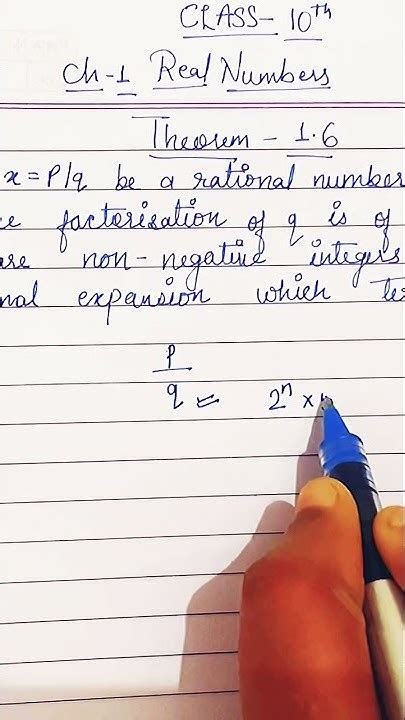 CLASS- 10th
Ch-1 Real Numbers
Theorem - 1.6
x = P/q be a rational number
factorisation of q is of
non-negative integers
expansion which
P
q = 2ⁿ ×